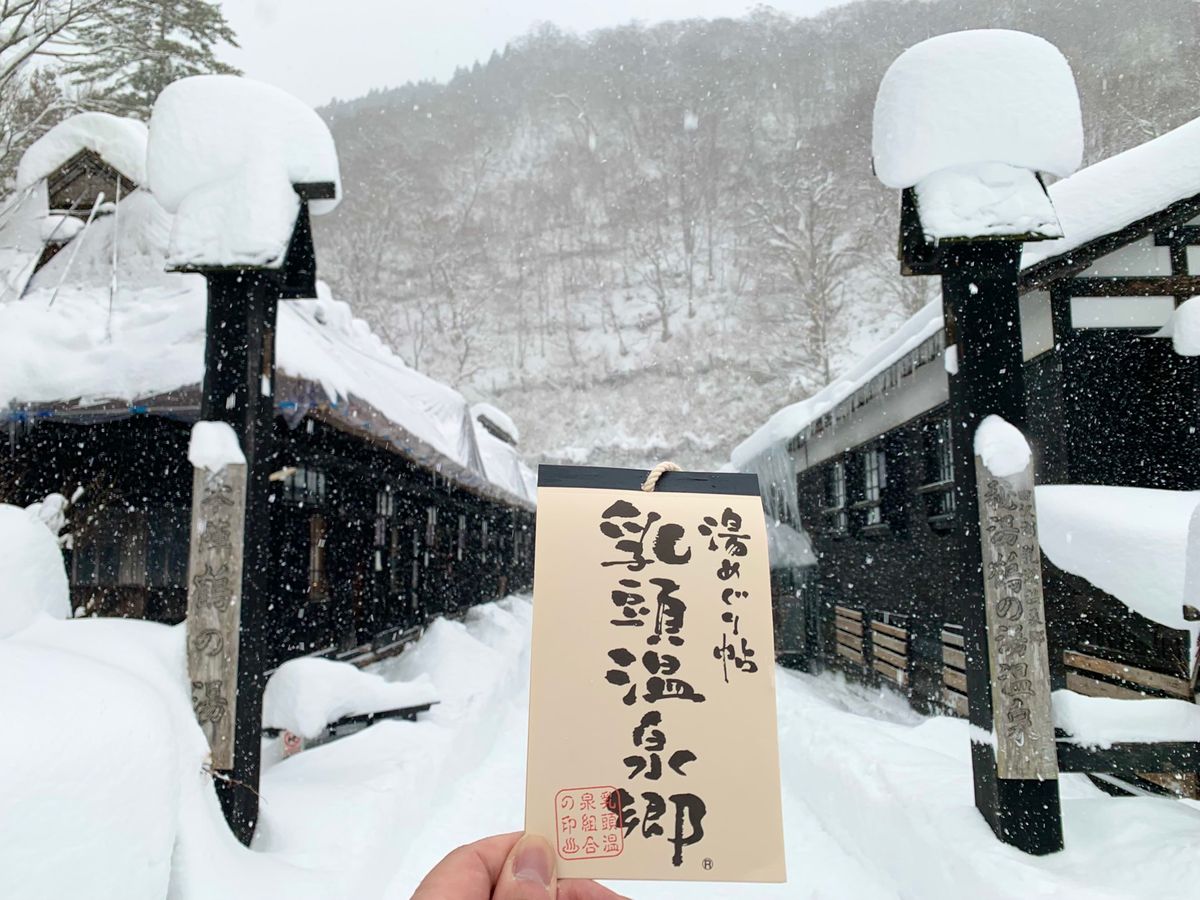 湯めぐり帖
乳頭温泉郷
®
乳頭温
泉組合
の印♨
本陣鶴の湯
秘湯鶴の湯温泉